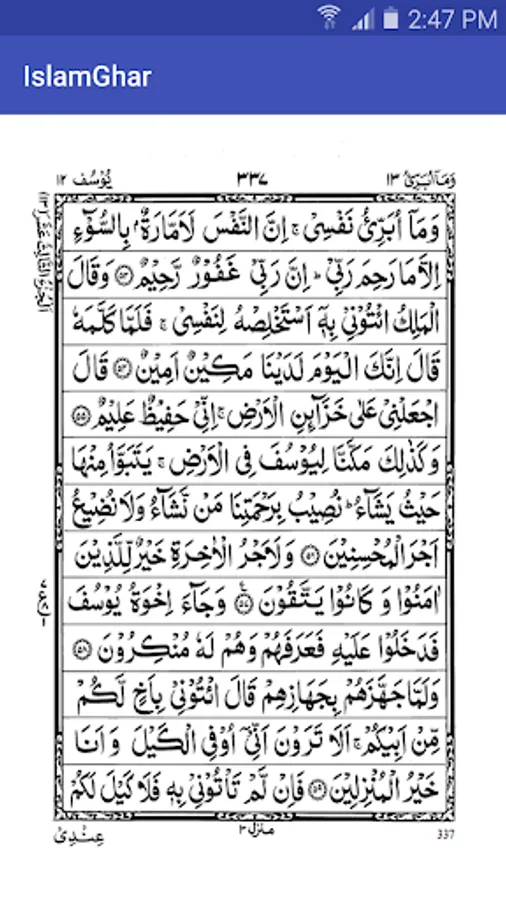 2:47 PM
IslamGhar
وَمَآ اُبَرِّئُ ١٣ ٣٣٧ يُوْسُف ١٢
وَمَآ اُبَرِّئُ نَفْسِىْ ۚ اِنَّ النَّفْسَ لَاَمَّارَةٌۢ بِالسُّوْٓءِ
اِلَّا مَا رَحِمَ رَبِّىْ ؕ اِنَّ رَبِّىْ غَفُوْرٌ رَّحِيْمٌ ﴿۵۳﴾ وَقَالَ
الْمَلِكُ ائْتُوْنِىْ بِهٖٓ اَسْتَخْلِصْهُ لِنَفْسِىْ ۚ فَلَمَّا كَلَّمَهٗ
قَالَ اِنَّكَ الْيَوْمَ لَدَيْنَا مَكِيْنٌ اَمِيْنٌ ﴿۵۴﴾ قَالَ
اجْعَلْنِىْ عَلٰى خَزَآئِنِ الْاَرْضِ ۚ اِنِّىْ حَفِيْظٌ عَلِيْمٌ ﴿۵۵﴾
وَكَذٰلِكَ مَكَّنَّا لِيُوْسُفَ فِى الْاَرْضِ ۚ يَتَبَوَّاُ مِنْهَا
حَيْثُ يَشَآءُ ؕ نُصِيْبُ بِرَحْمَتِنَا مَنْ نَّشَآءُ وَلَا نُضِيْعُ
اَجْرَ الْمُحْسِنِيْنَ ﴿۵۶﴾ وَلَاَجْرُ الْاٰخِرَةِ خَيْرٌ لِّلَّذِيْنَ
اٰمَنُوْا وَ كَانُوْا يَتَّقُوْنَ ﴿۵۷﴾ وَجَآءَ اِخْوَةُ يُوْسُفَ
فَدَخَلُوْا عَلَيْهِ فَعَرَفَهُمْ وَهُمْ لَهٗ مُنْكِرُوْنَ ﴿۵۸﴾
وَلَمَّا جَهَّزَهُمْ بِجَهَازِهِمْ قَالَ ائْتُوْنِىْ بِاَخٍ لَّكُمْ
مِّنْ اَبِيْكُمْ ۚ اَلَا تَرَوْنَ اَنِّىْٓ اُوْفِى الْكَيْلَ وَ اَنَا
خَيْرُ الْمُنْزِلِيْنَ ﴿۵۹﴾ فَاِنْ لَّمْ تَاْتُوْنِىْ بِهٖ فَلَا كَيْلَ لَكُمْ
منزل ٣
عِنْدِىْ
337